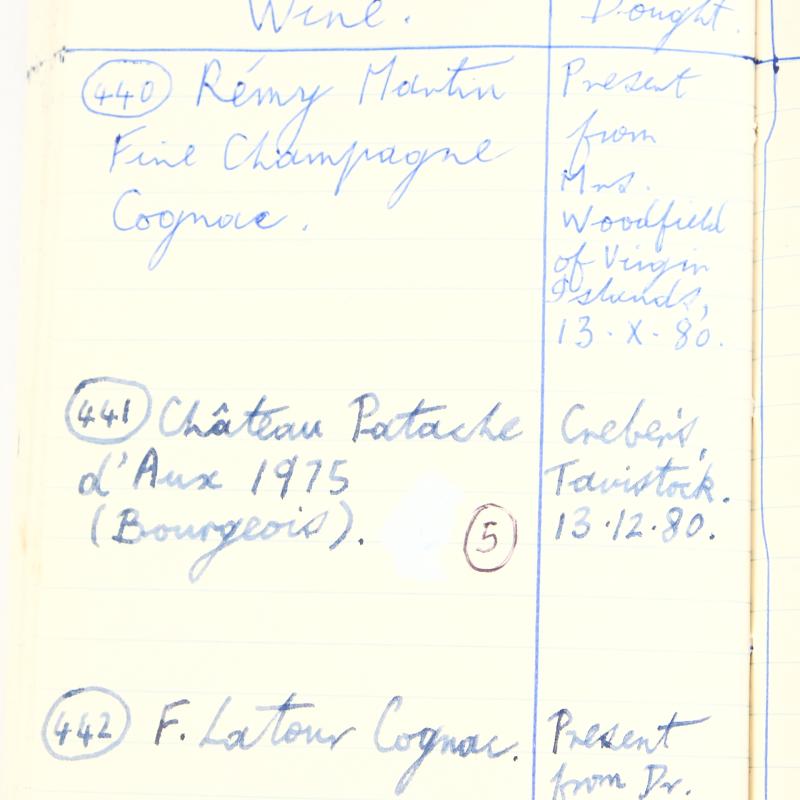 Wine.
Bought.
(440) Rémy Martin
Fine Champagne
Cognac.
Present
from
Mrs.
Woodfield
of Virgin
Islands,
13.X.80.
(441) Château Patache
d'Aux 1975
(Bourgeois).
(5)
Creber's,
Tavistock.
13.12.80.
(442) F. Latour Cognac.
Present
from Dr.